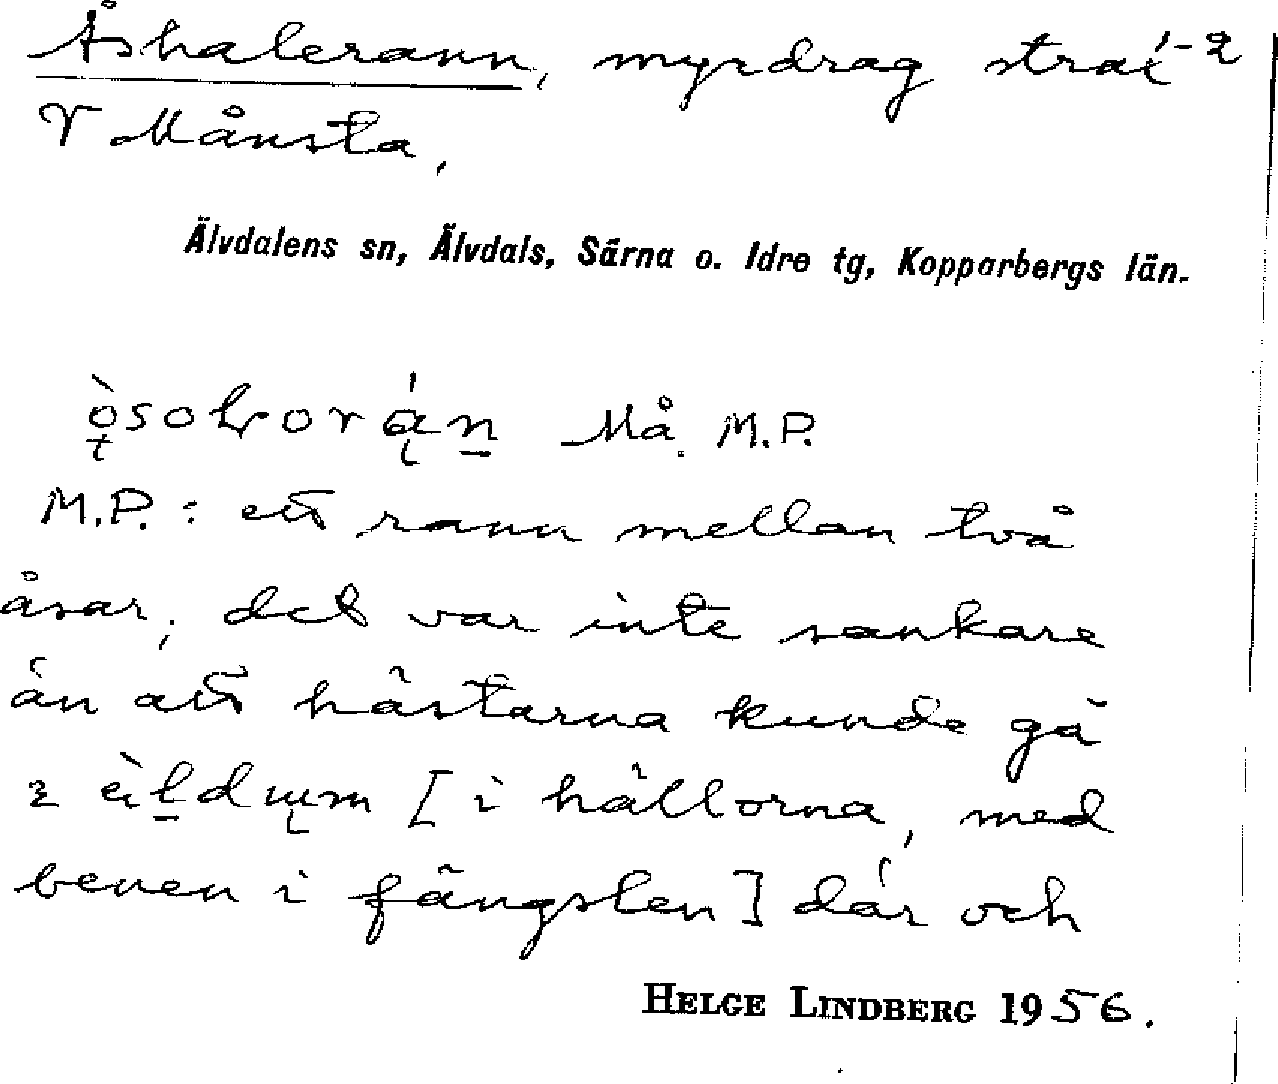 Åshalerann, myrdrag strax
V Månsta,
Älvdalens sn, Älvdals, Särna o. Idre tg, Kopparbergs län.
Må. M.P.
M.P.: ett rann mellan två
åsar, det var inte sankare
än att hästarna kunde gå
[i hällorna, med
benen i fängslen] där och
HELGE LINDBERG 1956.